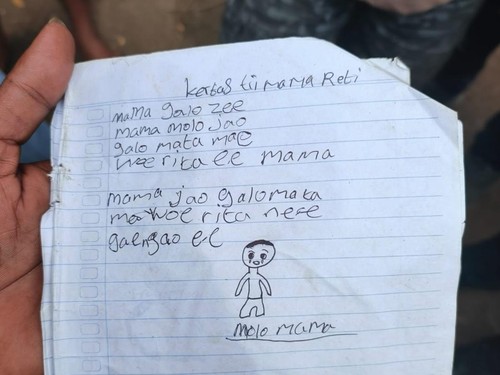 kertas tii mama Reti
mama galo zee
mama molo jao
galo mata mae
woe rita ee mama
mama jao galo mata
mae woe rita ne'e
gaengao ee
molo mama